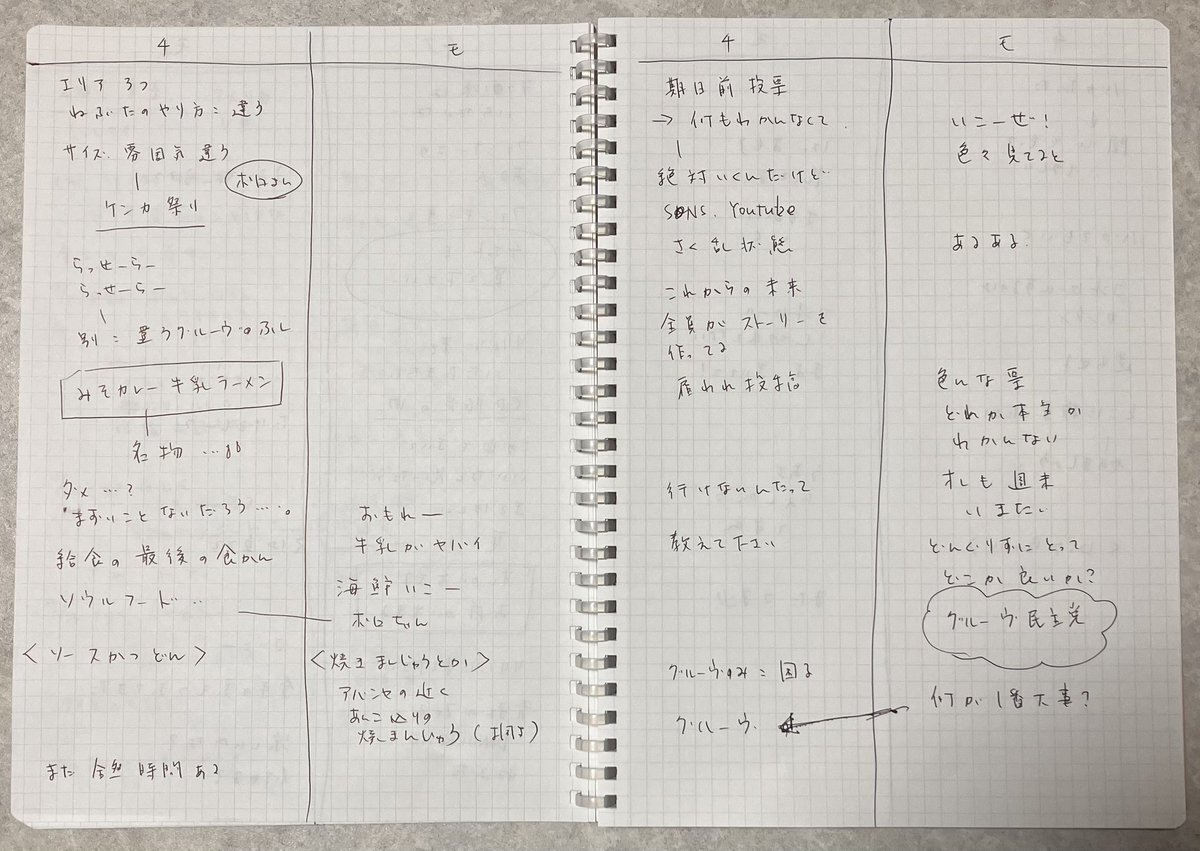 4
エリア 3つ
ねぶたのやり方に違う
サイズ.雰囲気違う
ケンカ祭り
らっせーらー
らっせーらー
別に違うグルーヴのふし
みそカレー牛乳ラーメン
名物…
ダメ…?
まずいことないだろう…。
給食の最後の食かん
ソウルフード…
<ソースかつどん>
また全然時間ある
モ
おもれー
牛乳がヤバイ
海鮮いこー
ボロちゃん
<焼きまんじゅうとか>
の近く
あんこ入りの
焼まんじゅう
4
期日前投票
→何もわかんなくて.
絶対いくんだけど
SNS. Youtube
さく乱状態
これからの未来
全員がストーリーを
作ってる
雇われ投稿
行けないんだって
教えて下さい
グルーヴのみに困る
グルーヴ.
モ
いこーぜ!
色々見てると
あるある.
色んな票
どれが本当か
わかんない
オレも週末
いきたい
どんぐりずにとって
どこが良いか?
グルーヴ民主党
何が1番大事?